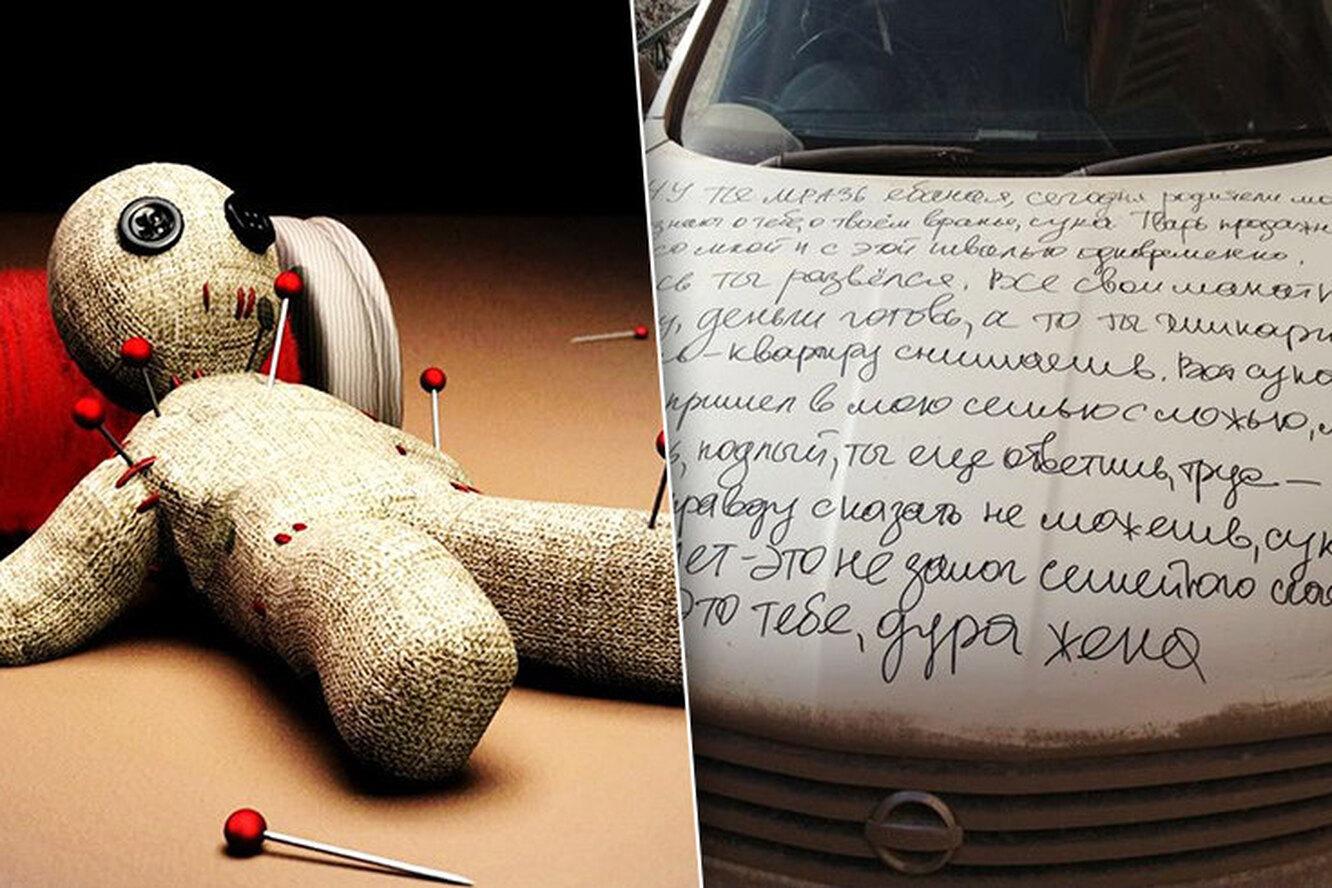 ты мразь ебаная, сегодня родители мо
знают о тебе, о твоём вранье, сука. Тварь продажн
со мной и с этой швалью одновременно.
ты развёлся. Все свои манатк
деньги готовь, а то ты шикарн
квартиру снимаешь. Вот сука
пришел в мою семью с ложью,
подлый, ты еще ответишь, трус —
правду сказать не можешь, сук
ет - это не залог семейного
Это тебе, дура жена